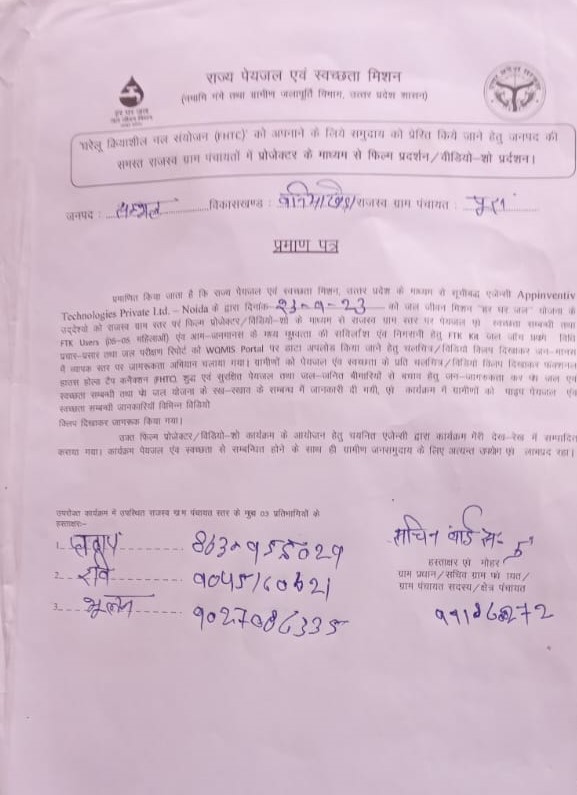 राज्य पेयजल एवं स्वच्छता मिशन
(नमामि गंगे तथा ग्रामीण जलापूर्ति विभाग, उत्तर प्रदेश शासन)
घरेलू क्रियाशील नल संयोजन (FHTC) को अपनाने के लिये समुदाय को प्रेरित किये जाने हेतु जनपद की
समस्त राजस्व ग्राम पंचायतों में प्रोजेक्टर के माध्यम से फिल्म प्रदर्शन/वीडियो-शो प्रर्दशन।
जनपद : सम्भल विकासखण्ड : बनियाखेड़ा राजस्व ग्राम पंचायत :
प्रमाण पत्र
प्रमाणित किया जाता है कि राज्य पेयजल एवं स्वच्छता मिशन, उत्तर प्रदेश के माध्यम से सूचीबद्ध एजेन्सी Appinventiv
Technologies Private Ltd. – Noida के द्वारा दिनांक 23-9-23 को जल जीवन मिशन "हर घर जल" योजना के
उद्देश्यो को राजस्व ग्राम स्तर पर फिल्म प्रोजेक्टर/विडियो-शो के माध्यम से राजस्व ग्राम स्तर पर पेयजल एवं स्वच्छता सम्बन्धी तथा
FTK Users (05-05 महिलाओं) एंव आम-जनमानस के मध्य गुणवत्ता की सर्विलांश एंव निगरानी हेतु FTK Kit जल जाँच प्रयोग विधि
प्रचार-प्रसार तथा जल परीक्षण रिपोर्ट को WQMIS Portal पर डाटा अपलोड किया जाने हेतु चलचित्र/विडियो क्लिप दिखाकर जन-मानस
में व्यापक स्तर पर जागरूकता अभियान चलाया गया। ग्रामीणों को पेयजल एंव स्वच्छता के प्रति चलचित्र/विडियो क्लिप दिखाकर फंक्शनल
हाउस होल्ड टैप कनैक्शन (FHTC), शुद्ध एवं सुरक्षित पेयजल तथा जल-जनित बीमारियों से बचाव हेतु जन-जागरूकता कर पेयजल एवं
स्वच्छता सम्बन्धी तथा पेयजल योजना के रख-रखाव के सम्बन्ध में जानकारी दी गयी, एवं कार्यक्रम में ग्रामीणों को पाइप पेयजल एंव
स्वच्छता सम्बन्धी जानकारियाँ विभिन्न विडियो
क्लिप दिखाकर जागरूक किया गया।
उक्त फिल्म प्रोजेक्टर/विडियो-शो कार्यक्रम के आयोजन हेतु चयनित एजेन्सी द्वारा कार्यक्रम मेरी देख-रेख में सम्पादित
कराया गया। कार्यक्रम पेयजल एंव स्वच्छता से सम्बन्धित होने के साथ ही ग्रामीण जनसमुदाय के लिए अत्यन्त उपयोगी एवं लाभप्रद रहा।
उपरोक्त कार्यक्रम में उपस्थित राजस्व ग्राम पंचायत स्तर के मुख्य 03 प्रतिभागियों के
हस्ताक्षर:-
1.
2. रवि 9045160621
3. भूलन 9027086335
सचिन वार्ड स०
हस्ताक्षर एवं मोहर
ग्राम प्रधान/सचिव ग्राम पंचायत/
ग्राम पंचायत सदस्य/क्षेत्र पंचायत